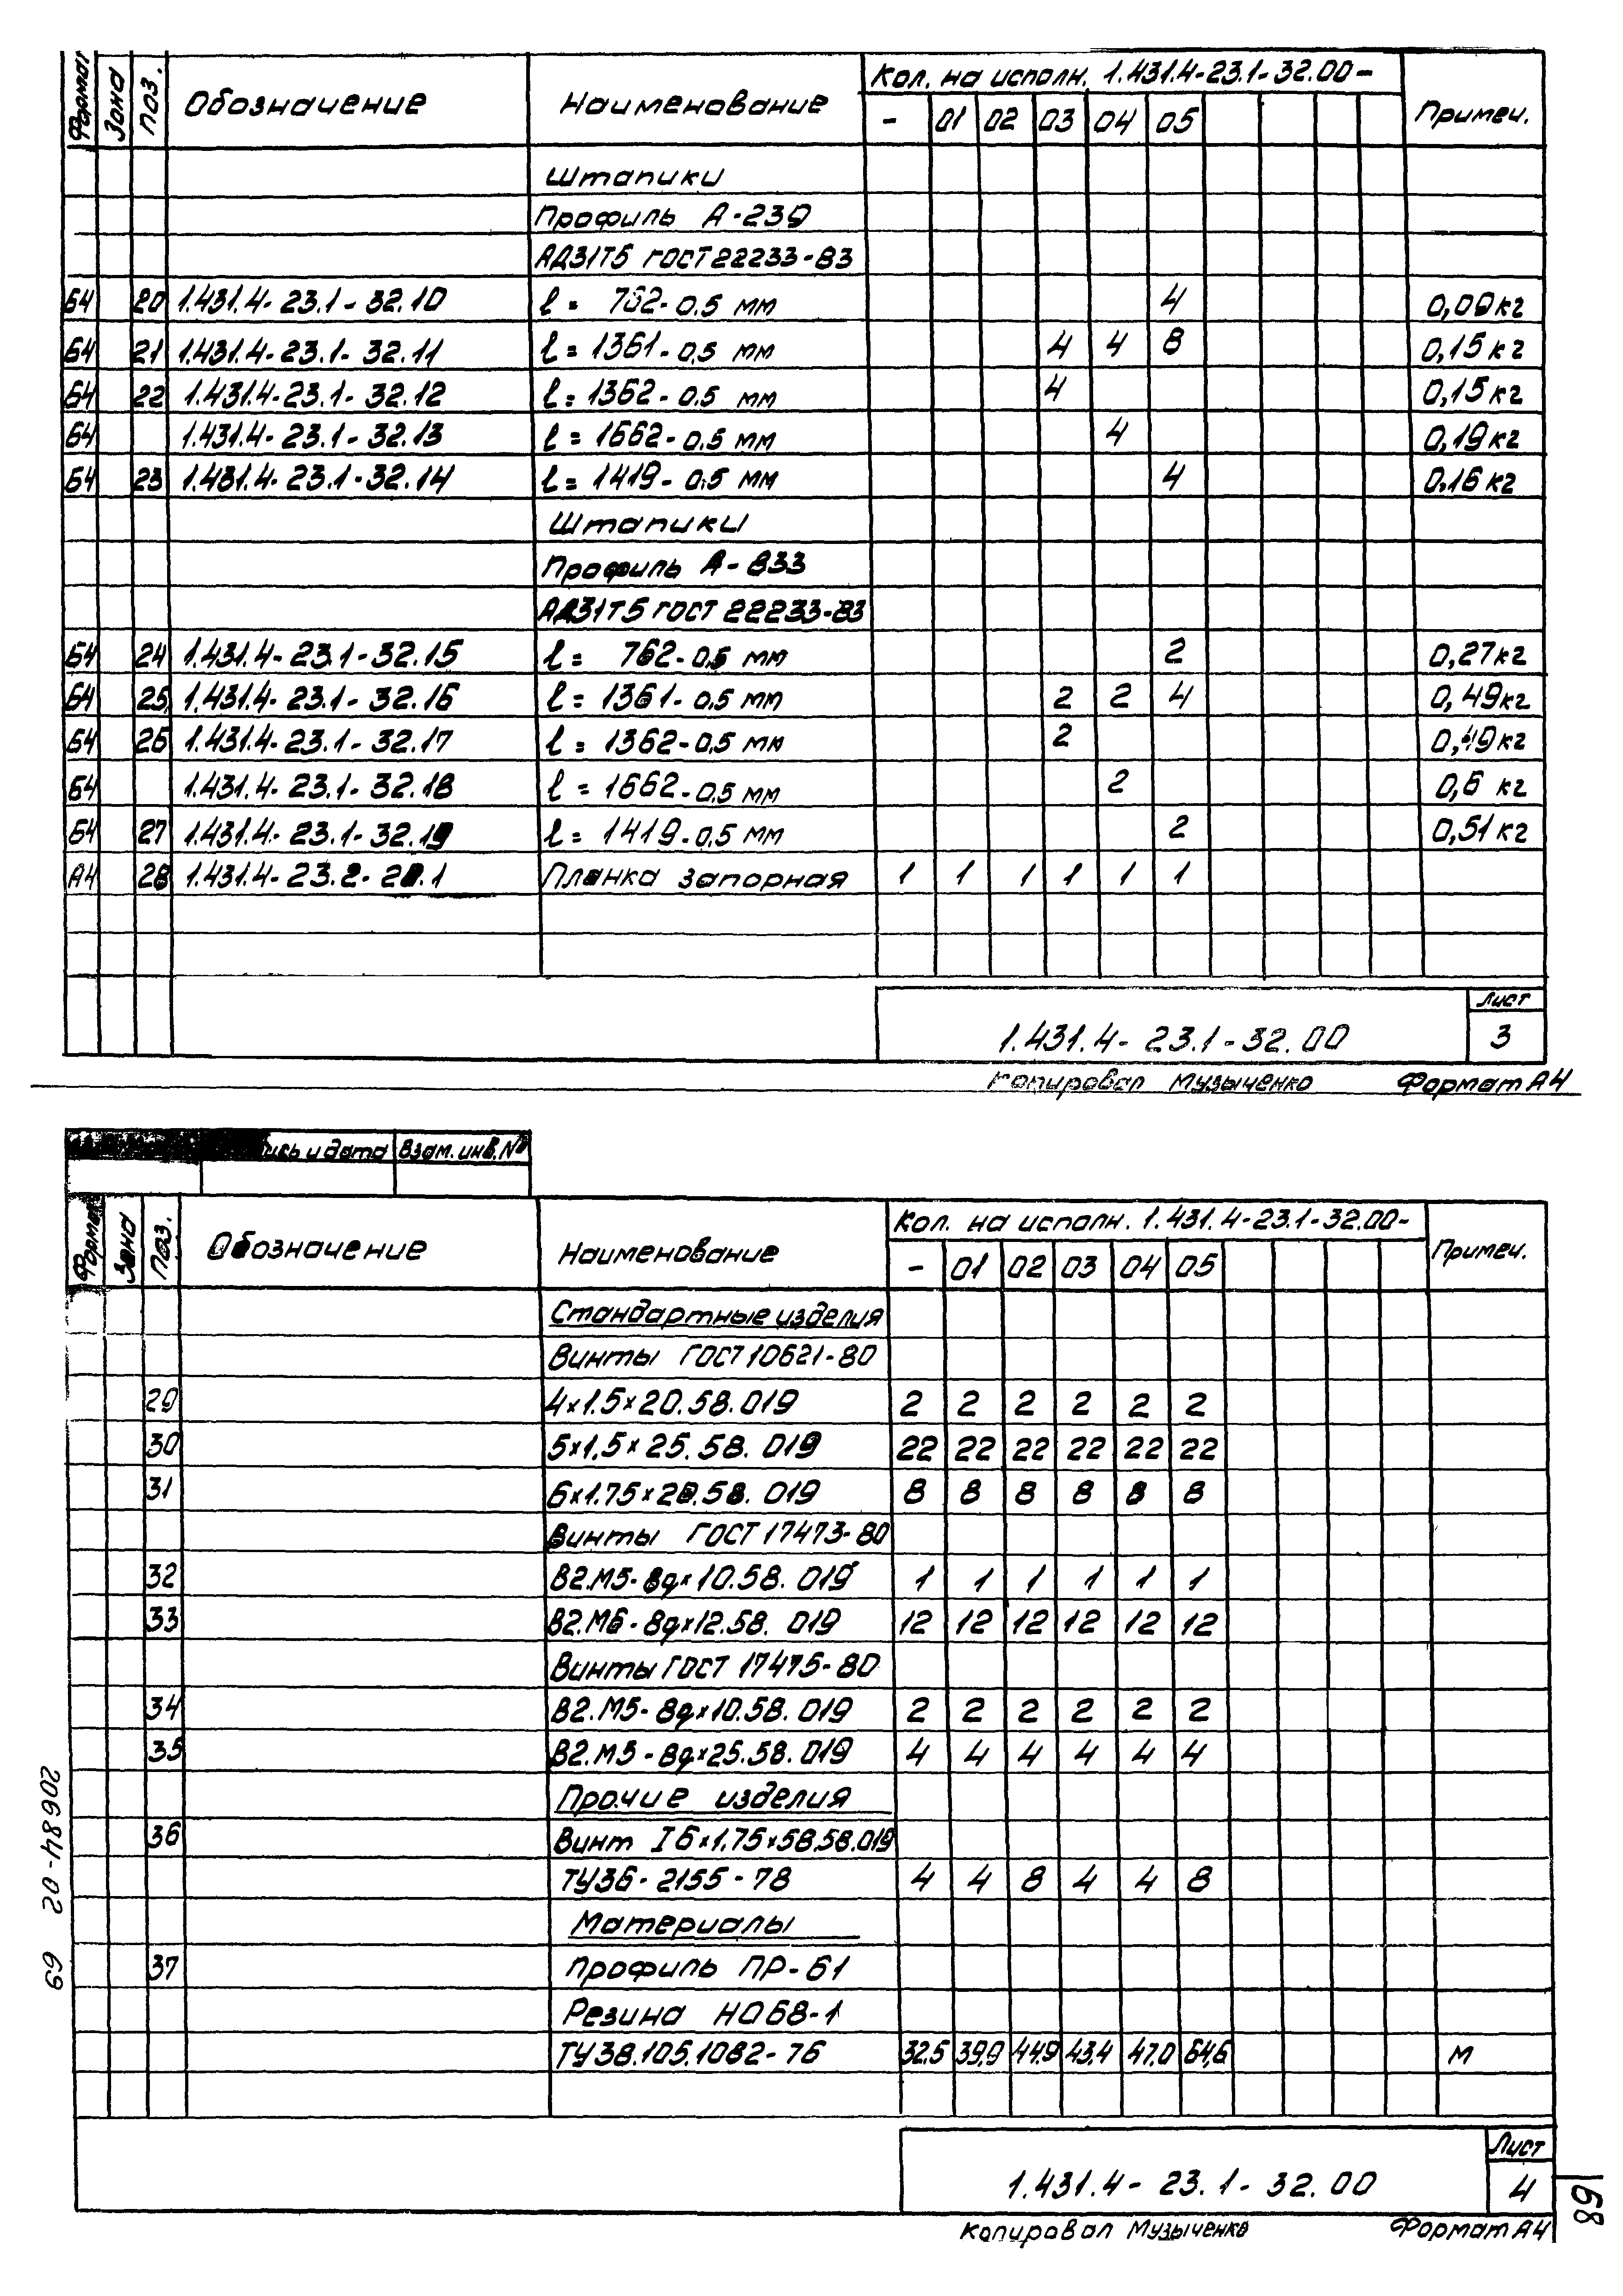 Формат Зона Поз. Обозначение Наименование Кол. на исполн. 1.431.4-23.1-32.00- Примеч.
- 01 02 03 04 05
Штапики
Профиль А-239
АД31Т5 ГОСТ 22233-83
Б4 20 1.431.4-23.1-32.10 ℓ= 762-0.5 мм 4 0,09кг
Б4 21 1.431.4-23.1-32.11 ℓ=1361-0,5 мм 4 4 8 0,15кг
Б4 22 1.431.4-23.1-32.12 ℓ=1362-0.5 мм 4 0,15кг
Б4 1.431.4-23.1-32.13 ℓ=1662-0.5 мм 4 0,19кг
Б4 23 1.431.4-23.1-32.14 ℓ=1419-0.5 мм 4 0,16кг
Штапики
Профиль А-833
АД31Т5 ГОСТ 22233-83
Б4 24 1.431.4-23.1-32.15 ℓ= 762-0,5 мм 2 0,27кг
Б4 25 1.431.4-23.1-32.16 ℓ=1361-0,5 мм 2 2 4 0,49кг
Б4 26 1.431.4-23.1-32.17 ℓ=1362-0,5 мм 2 0,49кг
Б4 1.431.4-23.1-32.18 ℓ=1662-0,5 мм 2 0,6 кг
Б4 27 1.431.4-23.1-32.19 ℓ=1419-0,5 мм 2 0,51кг
А4 28 Планка запорная 1 1 1 1 1 1
Лист
1.431.4-23.1-32.00 3
Копировал Музыченко Формат А4
и дата Взам. инв.№
Формат Зона Поз. Обозначение Наименование Кол. на исполн. 1.431.4-23.1-32.00- Примеч.
- 01 02 03 04 05
Стандартные изделия
Винты ГОСТ 10621-80
29 4×1.5×20.58.019 2 2 2 2 2 2
30 5×1,5×25.58.019 22 22 22 22 22 22
31 6×1.75×20.58.019 8 8 8 8 8 8
Винты ГОСТ 17473-80
32 В2.М5-8g×10.58.019 1 1 1 1 1 1
33 В2.М6-8g×12.58.019 12 12 12 12 12 12
Винты ГОСТ 17475-80
34 В2.М5-8g×10.58.019 2 2 2 2 2 2
35 В2.М5-8g×25.58.019 4 4 4 4 4 4
Прочие изделия
36 Винт I 6×1.75×58.58.019
ТУ36-2155-78 4 4 8 4 4 8
Материалы
37 Профиль ПР-61
Резина НО68-1
ТУ38.105.1082-76 32.5 39,9 44,9 43,4 47,0 64,6 м
Лист
1.431.4-23.1-32.00 4
Копировал Музыченко Формат А4
20684-02 69
68